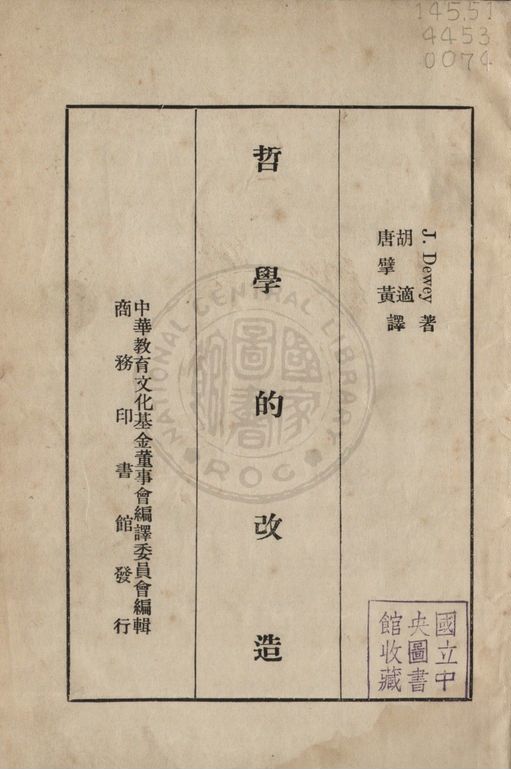 145.51
4453
0074
J. Dewey 著
胡適
唐擘黃
譯
哲學的改造
中華教育文化基金董事會編譯委員會編輯
商務印書館發行
國立中
央圖書
館收藏
NATIONAL CENTRAL LIBRARY
ROC
國家圖書館